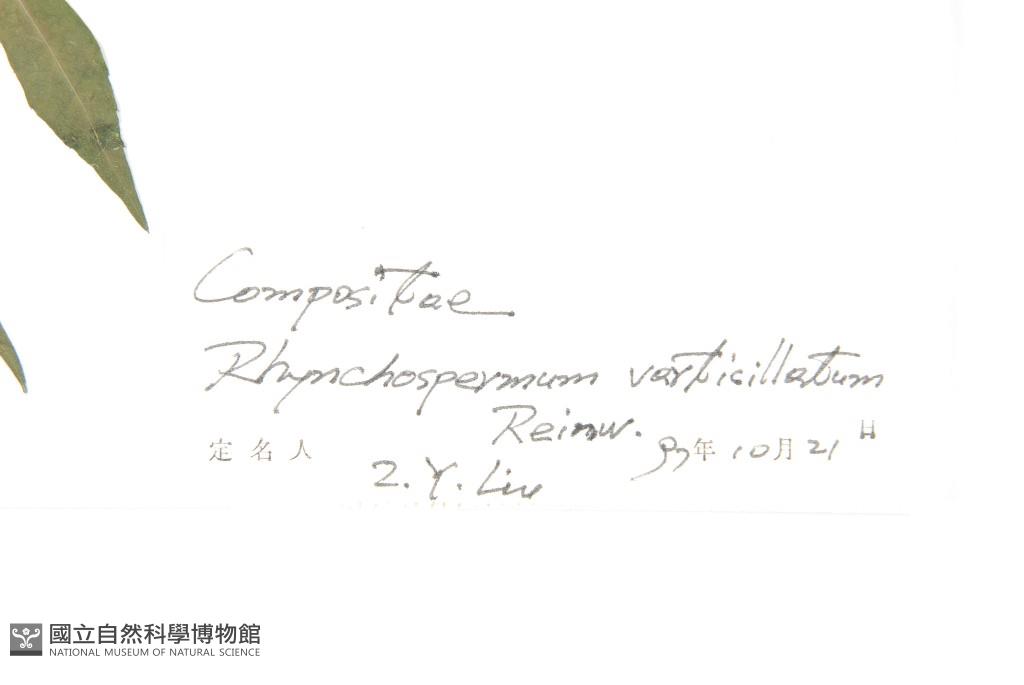 Compositae
Rhynchospermum varticillatum
Reinw.
定名人 97年10月21日
Z. Y. Liu
國立自然科學博物館
NATIONAL MUSEUM OF NATURAL SCIENCE